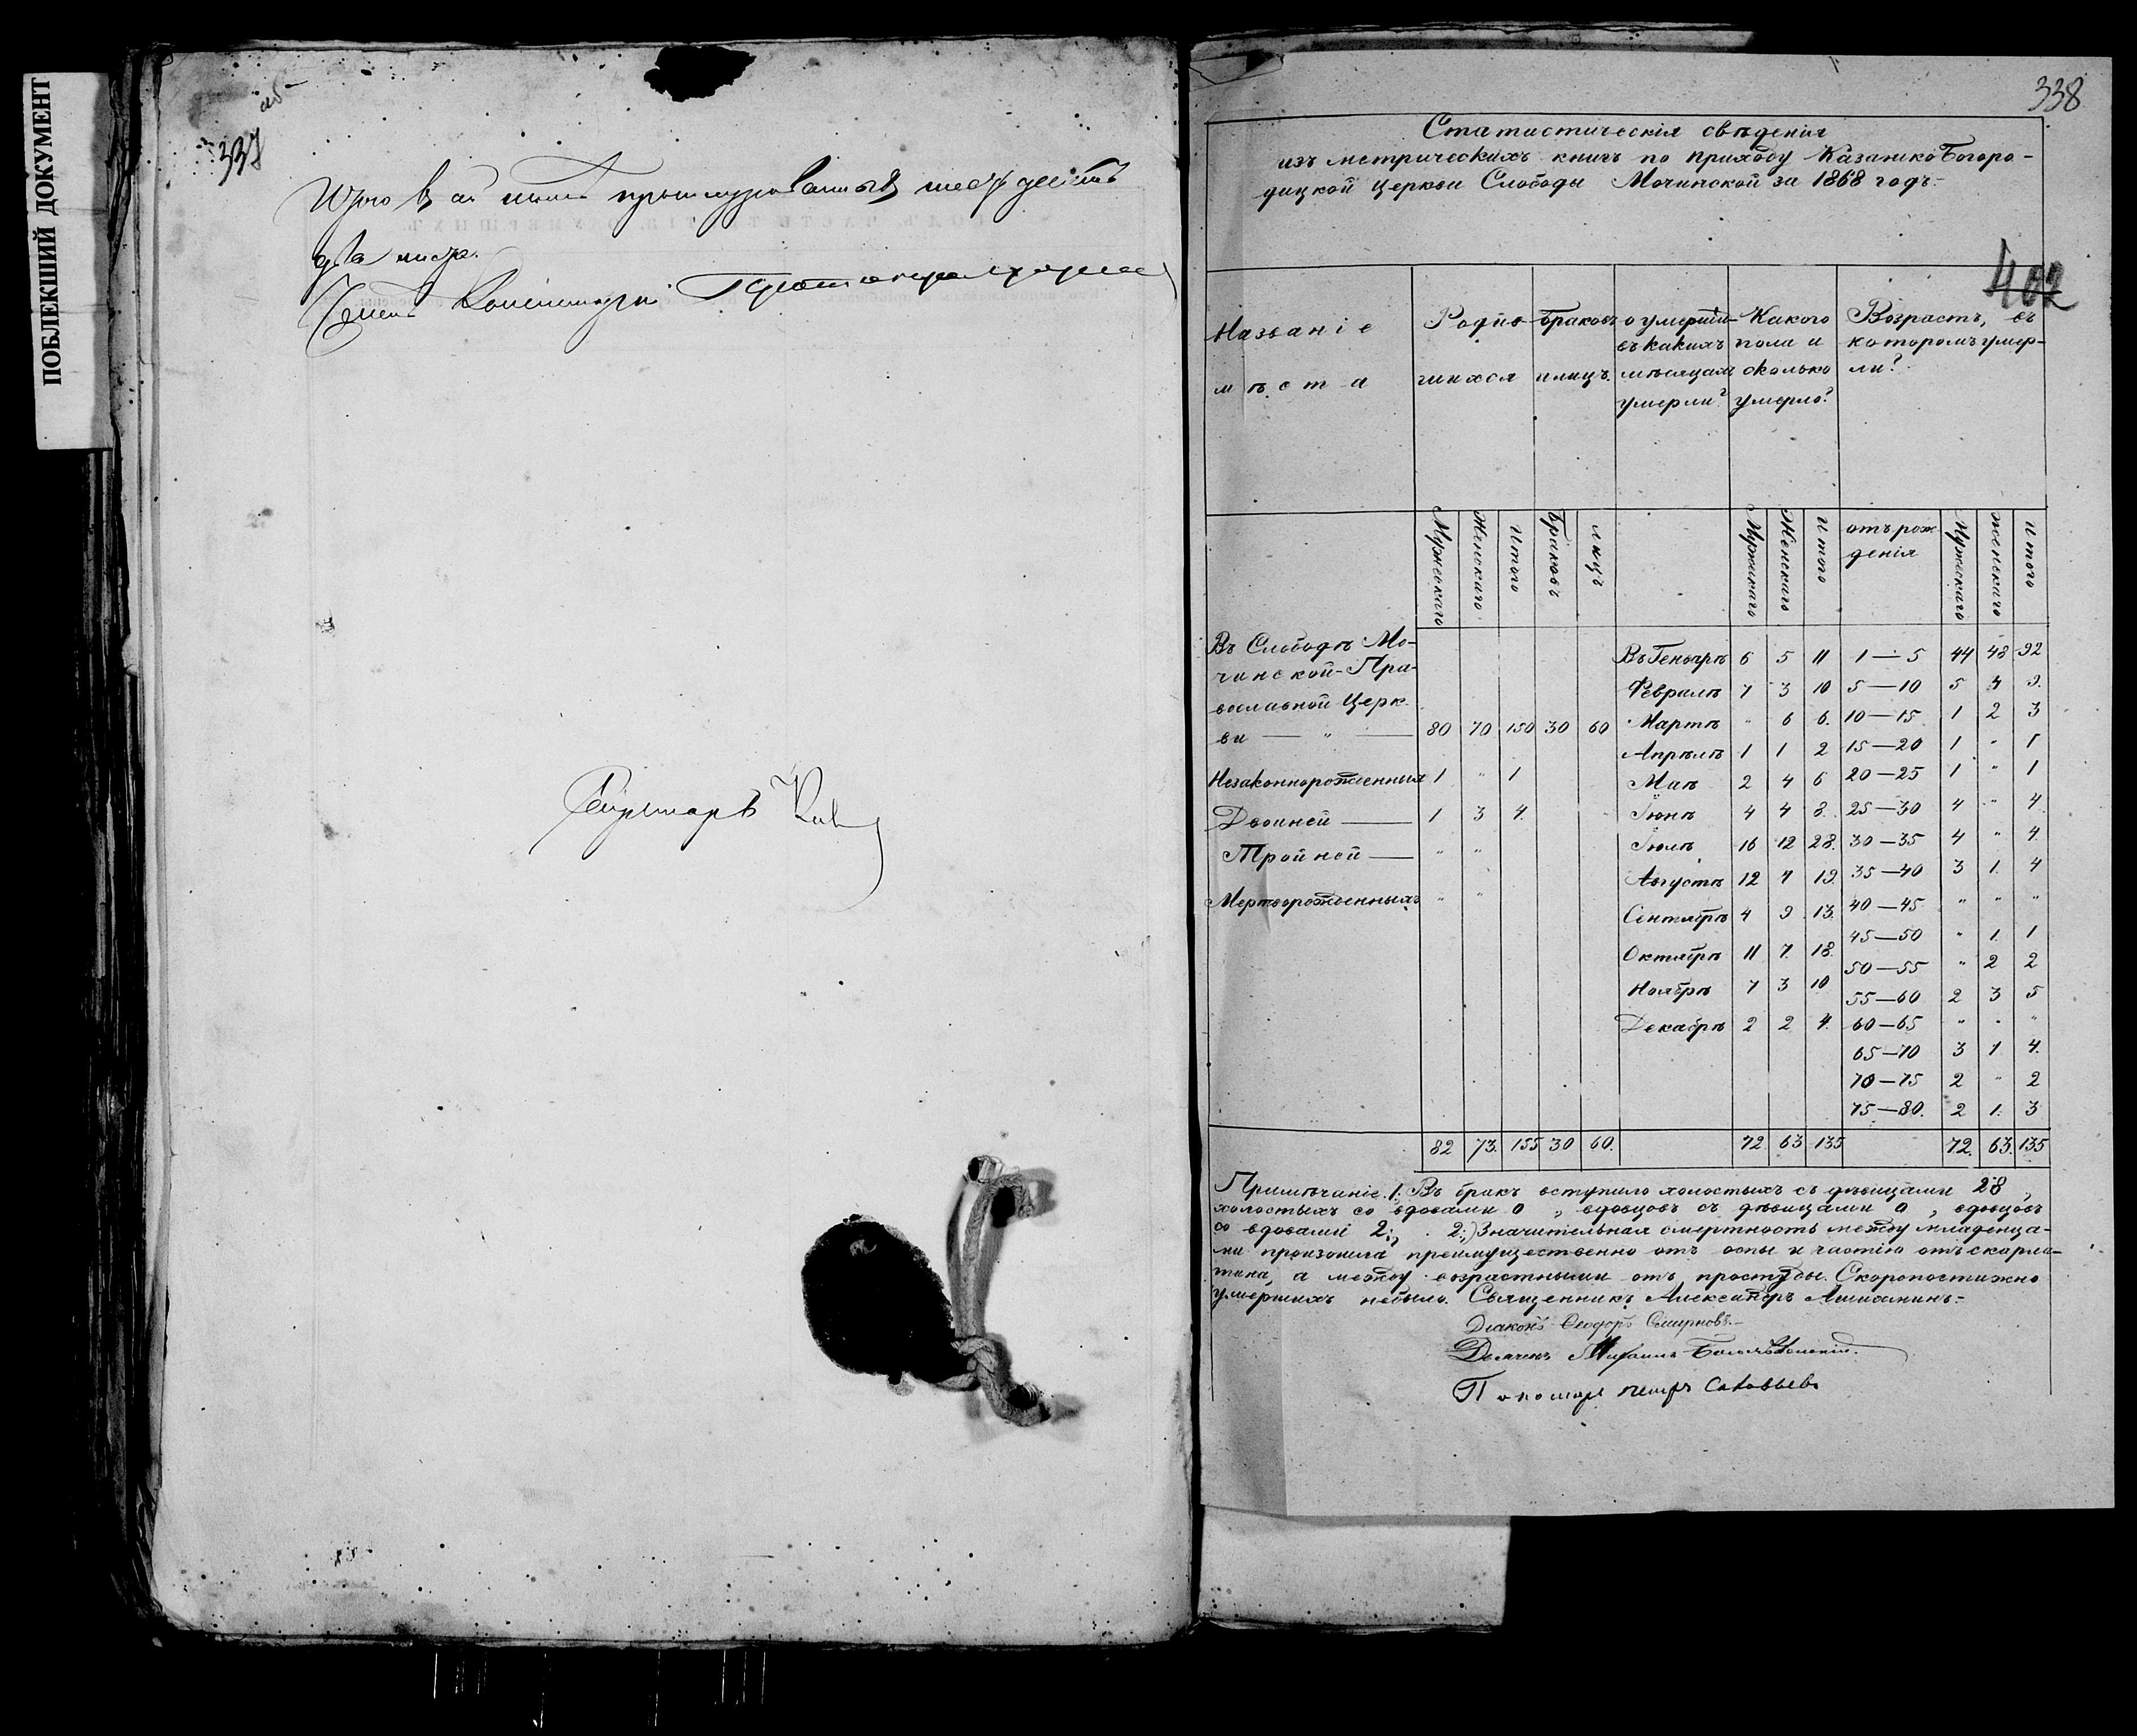 ПОБЛЕКШИЙ ДОКУМЕНТ
об
337
Итого въ сей книгѣ прошнурованныхъ шестьдесятъ
два листа.
Членъ Консисторіи
Секретарь
338
Статистическія свѣденія
изъ метрическихъ книгъ по приходу КазанскоБогоро-
дицкой церкви Слободы Мочинской за 1868 годъ.
402
Названіе мѣста Родив- шихся браковъ и лицъ. о умершихъ въ какихъ мѣсяцахъ умерли? Какого пола и сколько умерло? Возрастъ, въ которомъ умер- ли?
Мужескаго Женскаго Итого Браковъ лицъ Мужескаго Женскаго Итого отъ рож- денія Мужескаго женскаго Итого
Въ Слободѣ Мо- Въ Генварѣ 6 5 11 1—5 44 48 92
чинской Пра- Февралѣ 7 3 10 5—10 5 4 9.
вославной Церк-
ви — " — 80 70 150 30 60 Мартѣ " 6 6. 10—15 1 2 3
Апрѣлѣ 1 1 2 15—20 1 " 1
Незаконнорожденныхъ 1 " 1 Маѣ 2 4 6 20—25 1 " 1
Двойней — 1 3 4. Іюнѣ 4 4 8. 25—30 4 " 4.
Тройней — " " Іюлѣ 16 12 28. 30—35 4 " 4.
Августѣ 12 7 19. 35—40 3 1. 4
Мертворожденныхъ " " Сентябрѣ 4 9 13. 40—45 " " "
45—50 " 1. 1
Октябрѣ 11 7. 18. 50—55 " 2 2
Ноябрѣ 7 3 10 55—60 2 3 5
Декабрѣ 2 2 4. 60—65 " " "
65—70 3 1. 4.
70—75 2 " 2
75—80. 2 1. 3
82 73. 155 30 60. 72 63 135 72. 63. 135
Примѣчаніе. 1. Въ бракъ вступило холостыхъ съ дѣвицами 28,
холостыхъ со вдовами 0, вдовцовъ съ дѣвицами 0, вдовцовъ
со вдовами 2; 2;) Значительная смертность между младенца-
ми произошла преимущественно отъ оспы и частію отъ скарла-
тина, а между возрастными отъ простуды. Скоропостижно
умершихъ небыло. Священникъ Александръ
Діаконъ Ѳеодоръ Смирновъ.
Дьячекъ Михаилъ
Пономарь Петръ Соловьевъ